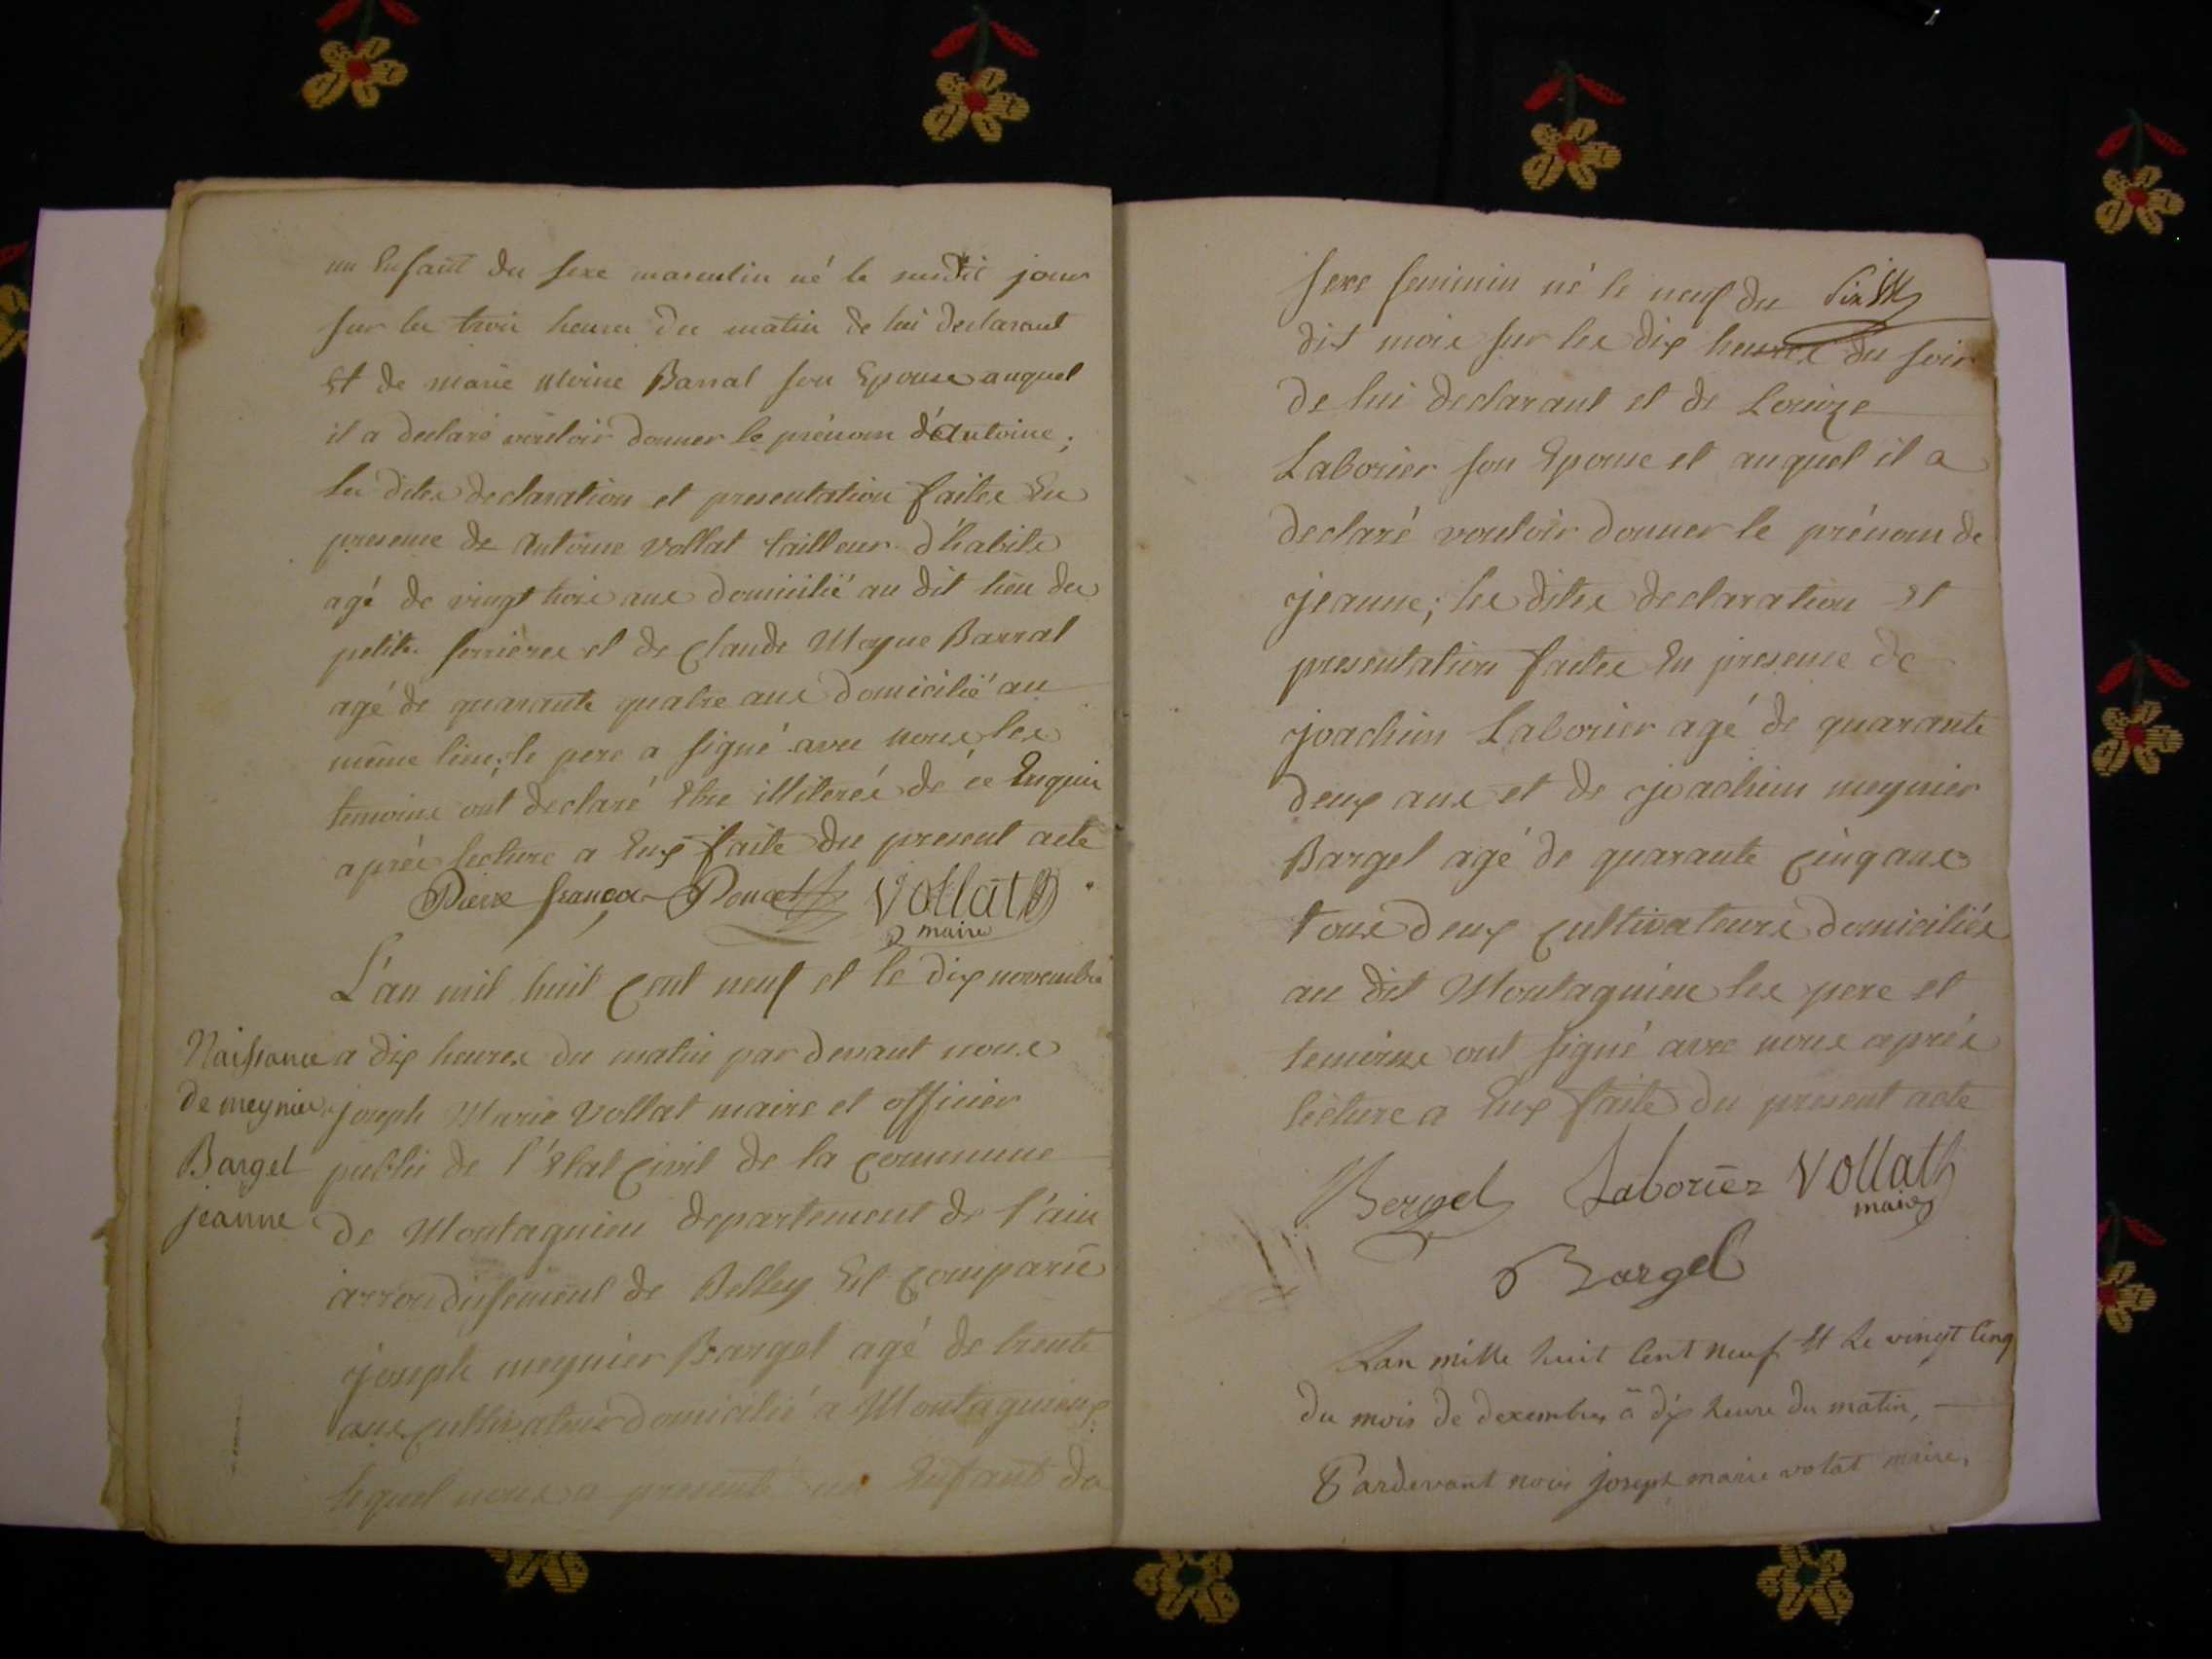 un Enfant du sexe masculin né le susdit jour
sur les trois heures du matin de lui declarant
et de marie Moine Barral son Epouse auquel
il a declaré vouloir donner le prénom d'antoine;
les dites declaration et presentation faites En
presence de antoine vollat tailleur d'habits
agé de vingt trois ans domicilié au dit lieu des
petites ferrières et de Claude Moyne Barral
agé de quarante quatre ans domicilié au
même lieu; le pere a signé avec nous les
temoins ont declaré Etre illiterés de ce Enquis
après lecture a Eux faite du present acte
Pierre françois Poncet vollat
maire
L'an mil huit Cent neuf et le dix novembre
Naissance
de meynier
Bargel
jeanne
a dix heures du matin par devant nous
joseph Marie vollat maire et officier
public de l'Etat Civil de la Commune
de Montagnieu departement de l'ain
arrondissement de Belley Est Comparu
joseph meynier Bargel agé de trente
ans Cultivateur domicilié a Montagnieu
lequel nous a presenté un Enfant du
sexe feminin né le neuf du
dit mois sur les dix heures du soir
de lui declarant et de Louize
Laborier son Epouse et auquel il a
declaré vouloir donner le prénom de
jeanne; les dites declaration et
presentation faites En presence de
joachim Laborier agé de quarante
deux ans et de joachim meynier
Bargel agé de quarante Cinq ans
tous deux Cultivateurs domiciliés
au dit Montagnieu les pere et
temoins ont signé avec nous après
lecture a Eux faite du present acte
Bergel Laborier vollat
maire
Bargel
Lan mille huit Cent neuf Et Le vingt Cinq
du mois de dexembre à dix heure du matin,
Pardevant nous joseph marie volat maire,